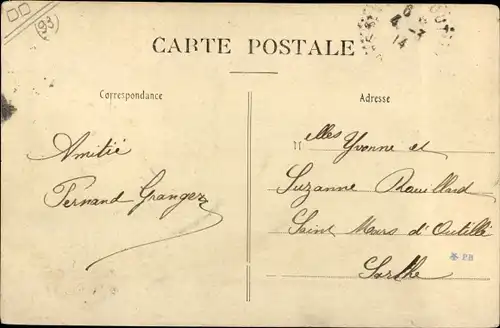 93
CARTE POSTALE
6
4 - 3
14
Correspondance
Adresse
Amitié
Fernand Granger
Melles Yvonne et
Suzanne Rouillard
Saint Mars d'Outillé
Sarthe
PB